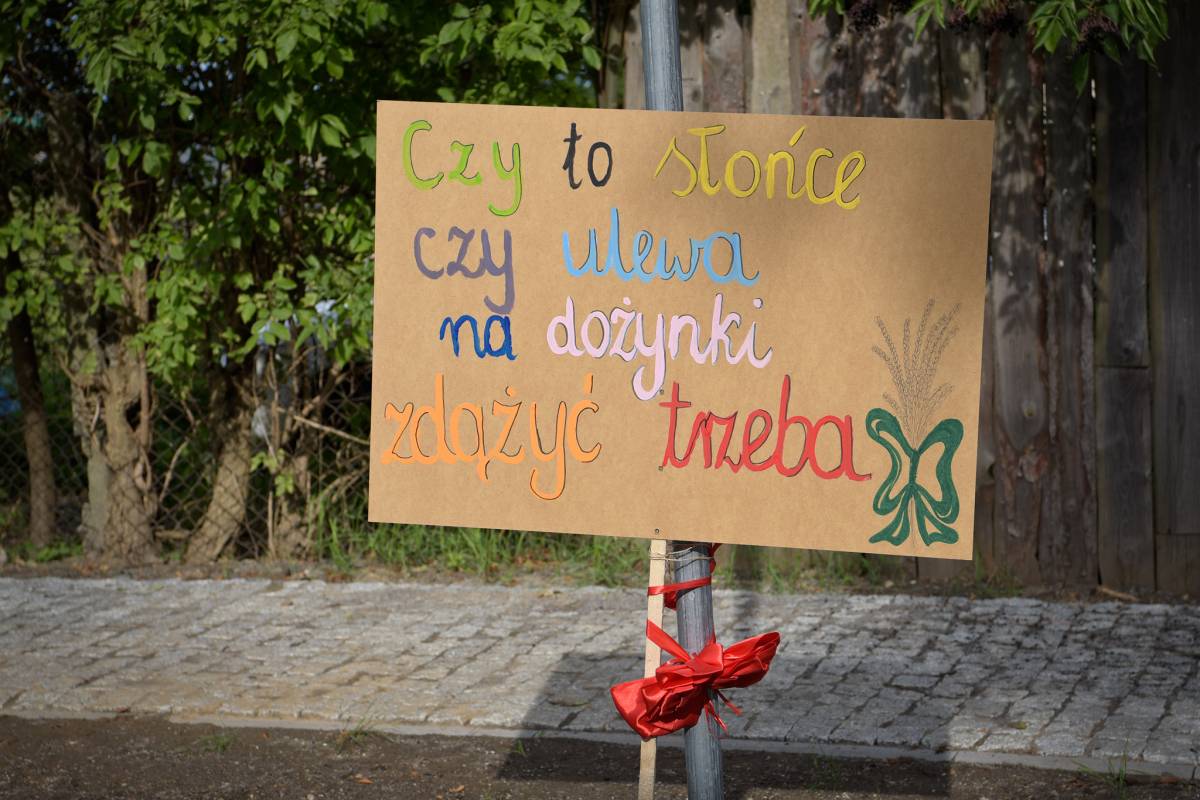 Czy to słońce
czy ulewa
na dożynki
zdążyć trzeba